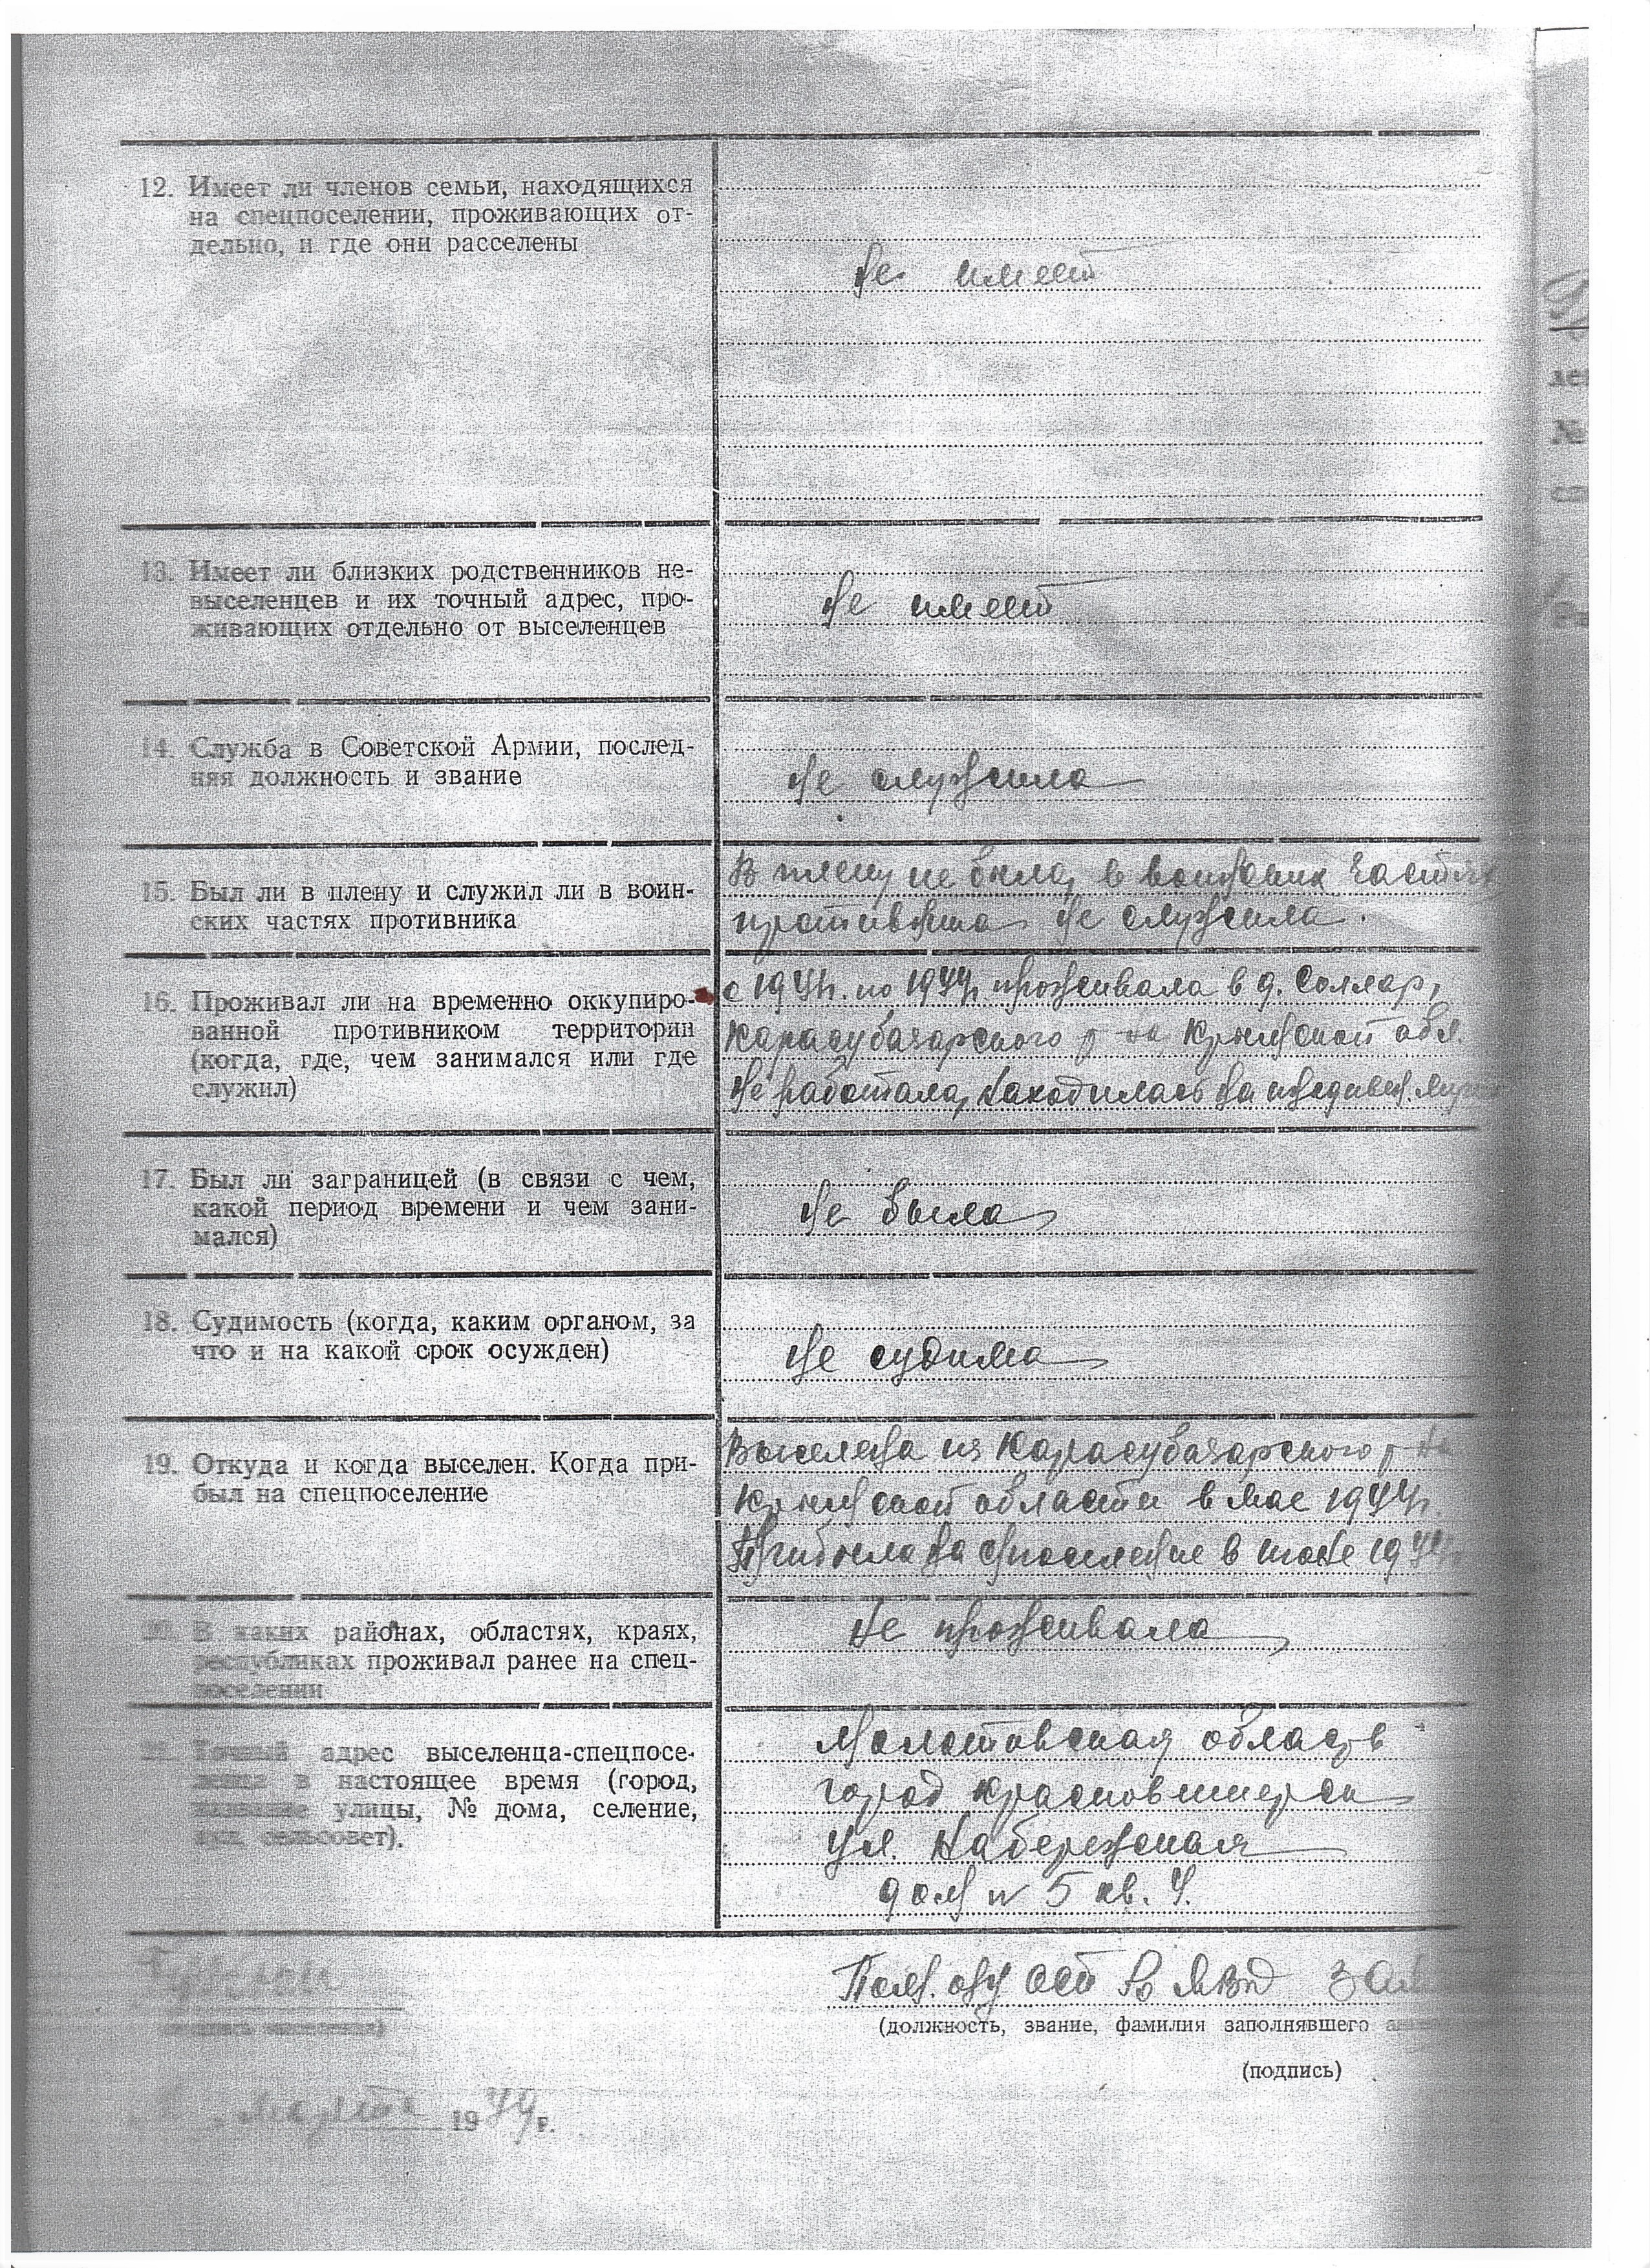 12. Имеет ли членов семьи, находящихся
на спецпоселении, проживающих от-
дельно, и где они расселены
не имеет
13. Имеет ли близких родственников не-
выселенцев и их точный адрес, про-
живающих отдельно от выселенцев
не имеет
14. Служба в Советской Армии, послед-
няя должность и звание
не служила
15. Был ли в плену и служил ли в воин-
ских частях противника
В плену не была, в воинских частях
противника не служила.
16. Проживал ли на временно оккупиро-
ванной противником территории
(когда, где, чем занимался или где
служил)
с 1941г. по 1944г. проживала в д. Соллар,
Карасубазарского р-на, Крымской обл.
Не работала, находилась на иждивен.
17. Был ли заграницей (в связи с чем,
какой период времени и чем зани-
мался)
не была
18. Судимость (когда, каким органом, за
что и на какой срок осужден)
не судима
19. Откуда и когда выселен. Когда при-
был на спецпоселение
Выселена из Карасубазарского р-на
Крымской области в мае 1944г.
Прибыла на споселение в июне 1944
20. В каких районах, областях, краях,
республиках проживал ранее на спец-
поселении
Не проживала
21. Точный адрес выселенца-спецпосе-
ленца в настоящее время (город,
название улицы, № дома, селение,
сельсовет).
Молотовская область
город Красновишерск
ул. Набережная
дом № 5 кв. 4.
Пом. о/у
МВД
(должность, звание, фамилия заполнявшего
(подпись)
марта 1949г.